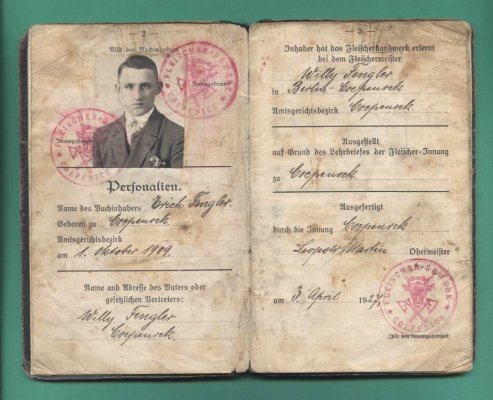 - 2 -
Bild des Buchinhabers
FLEISCHER-GEWERK
COEPENICK
Innungsstempel
Innungsstempel
FLEISCHER-GEWERK
COEPENICK
Personalien.
Name des Buchinhabers Erich Fengler
Geboren zu Coepenick
Amtsgerichtsbezirk
am 1. Oktober 1909.
Name und Adresse des Vaters oder
gesetzlichen Vertreters:
Willy Fengler
Coepenick.
- 3 -
Inhaber hat das Fleischerhandwerk erlernt
bei dem Fleischermeister
Willy Fengler
in Berlin-Coepenick
Amtsgerichtsbezirk Coepenick
Ausgestellt
auf Grund des Lehrbriefes der Fleischer-Innung
zu Coepenick
Ausgefertigt
durch die Innung Coepenick
Leopold Martin Obermeister
am 3. April 1927.
FLEISCHER-GEWERK
COEPENICK
(Für den Innungsstempel)